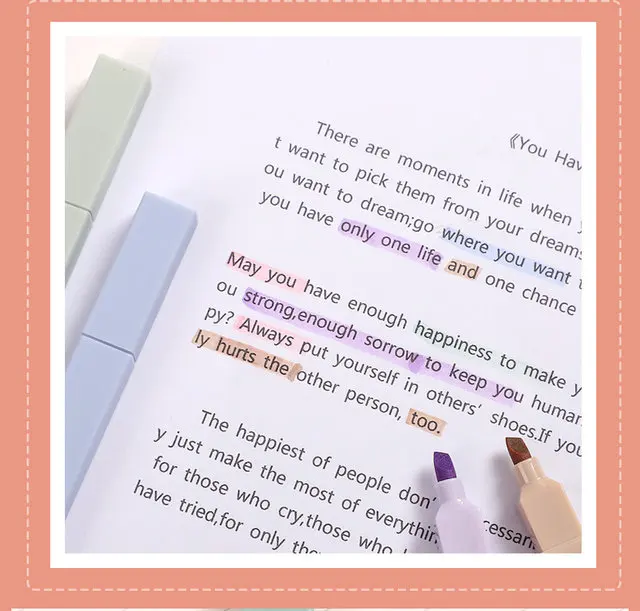 《You Hav
There are moments in life when y
t want to pick them from your dreams
ou want to dream;go where you want t
you have only one life and one chance
May you have enough happiness to make y
ou strong,enough sorrow to keep you human
py? Always put yourself in others' shoes.If you
ly hurts the other person, too.
The happiest of people don' cessari
y just make the most of everythin
for those who cry,those who h
have tried,for only the